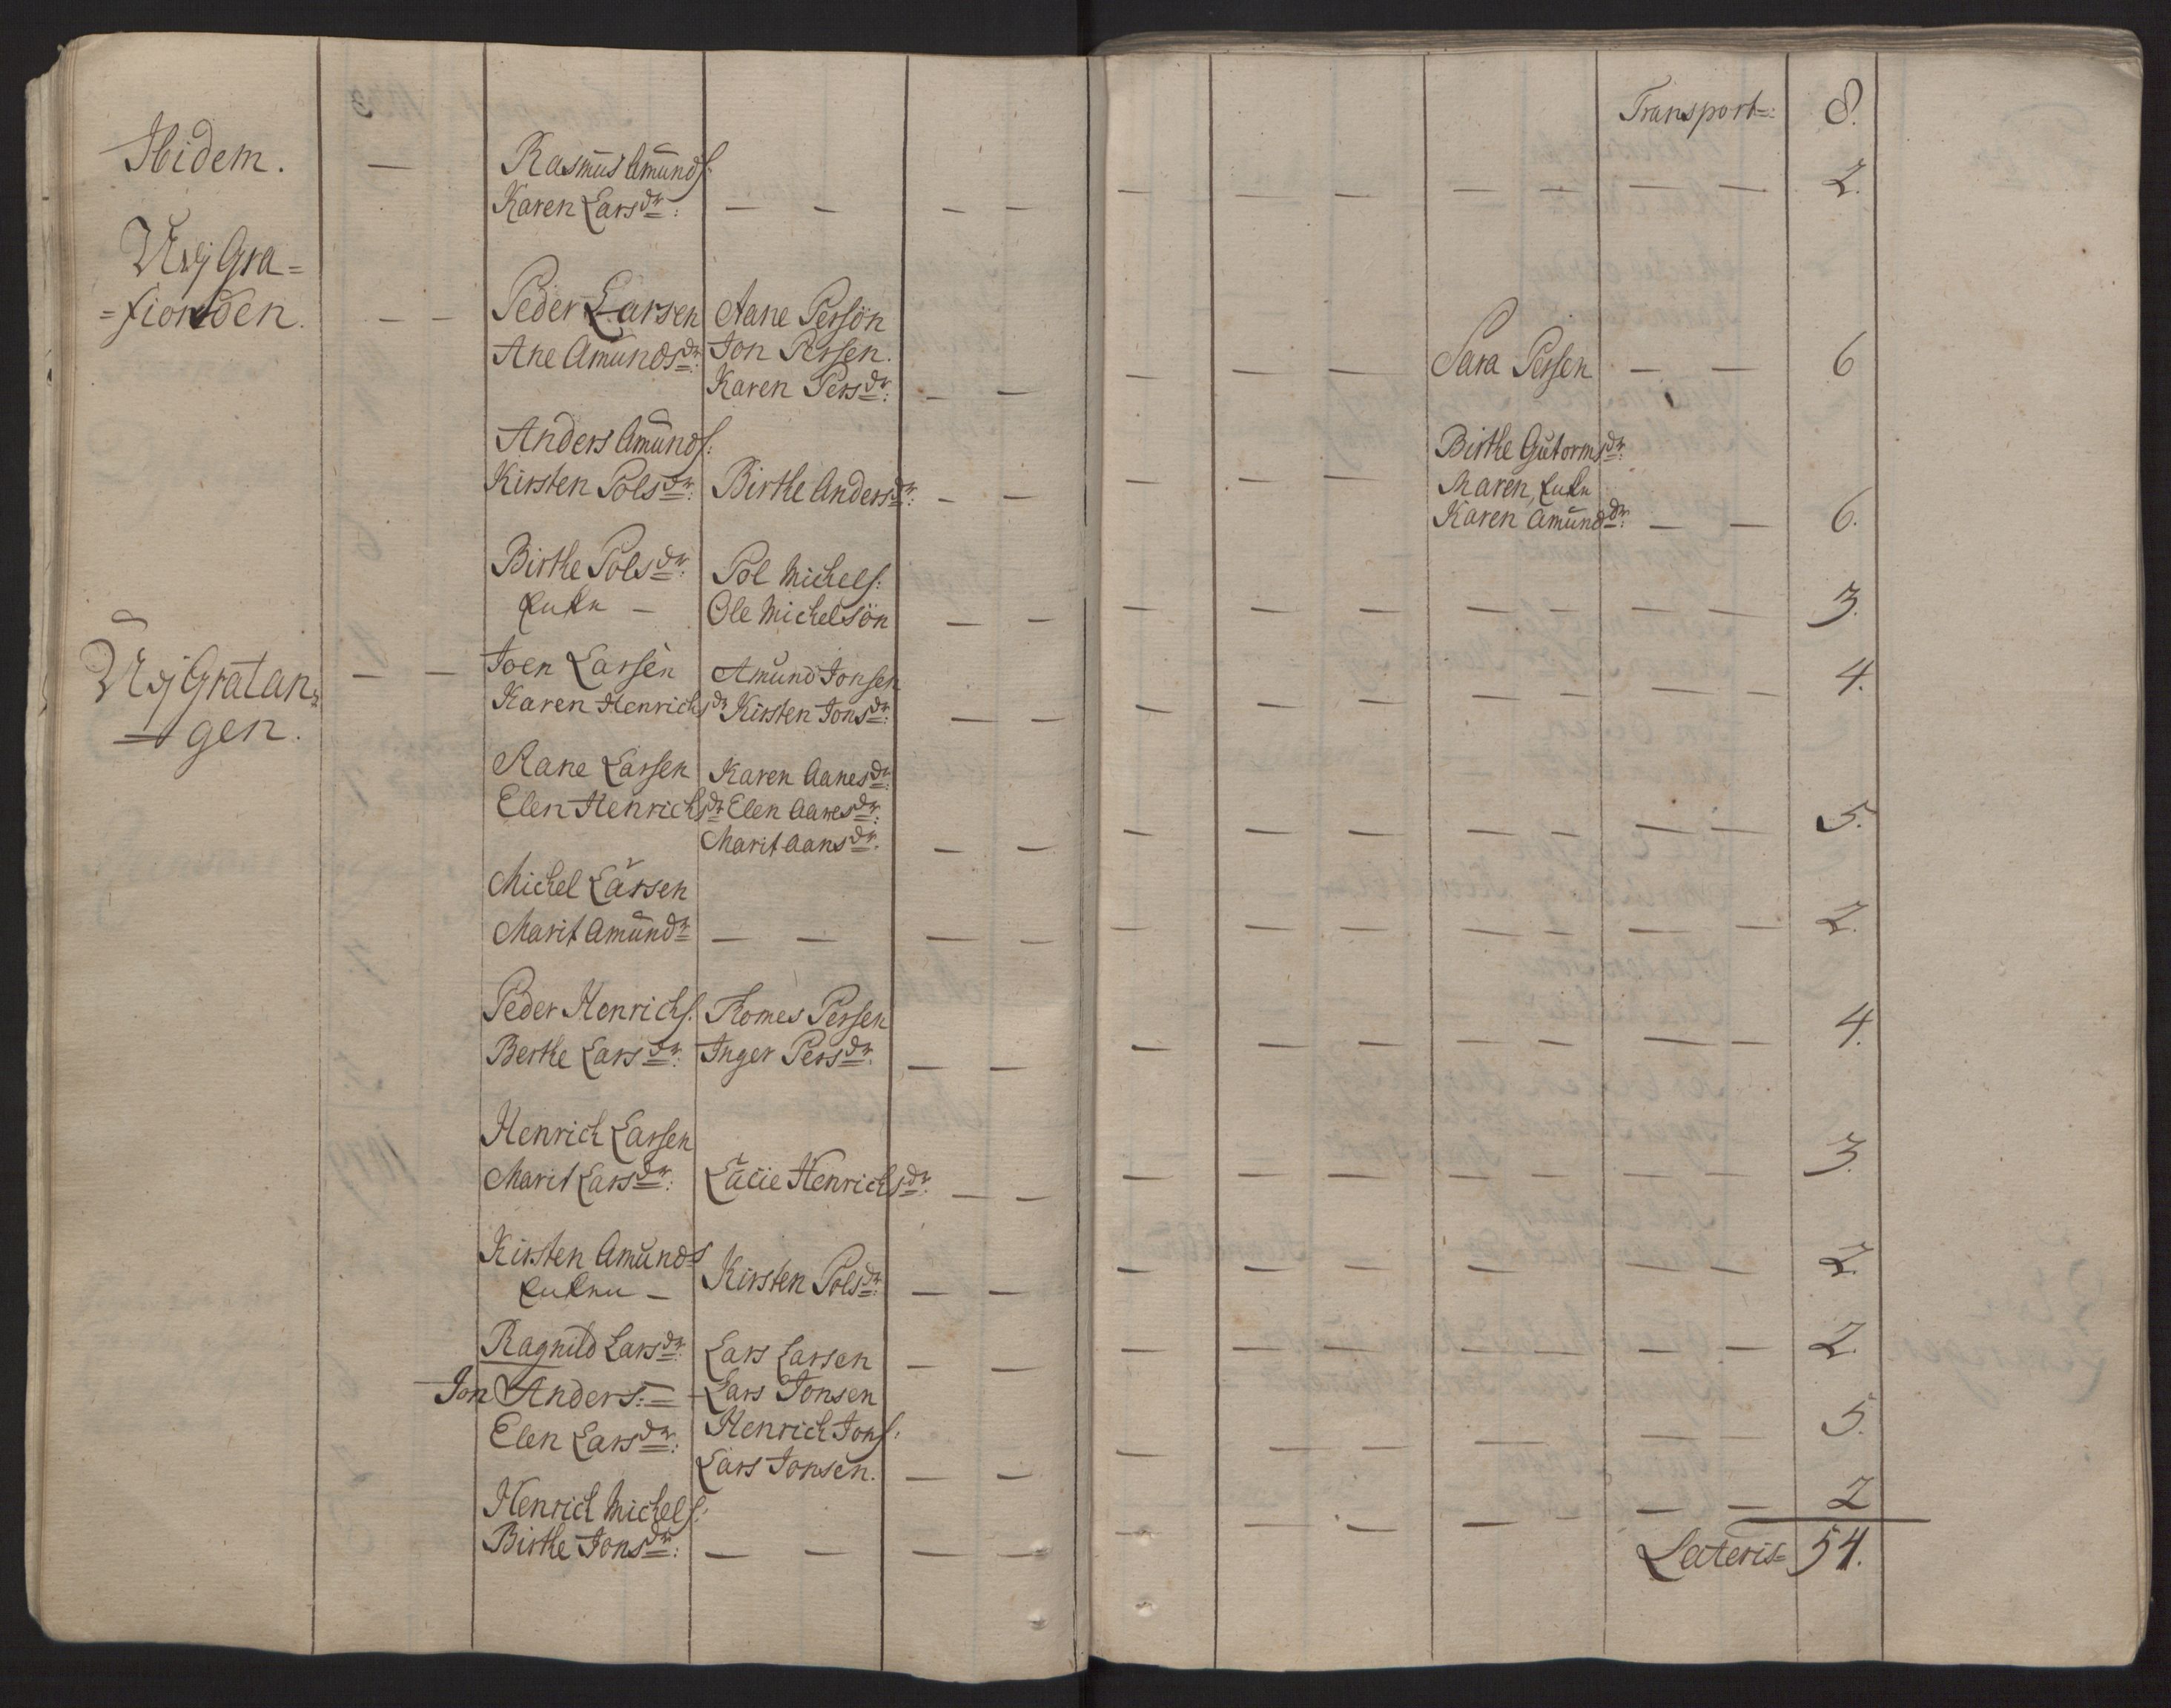 Transport=: 8.
Ibidem. — Rasmus Amunds:
Karen Larsdr: — — — — — — — — — — — 2.
Ury Gra=
=fiorden. — — Peder Larsen Aane Persön
Ane Amundsdr: Jon Persen.
Karen Persdr: — — — — — Sara Persen — — 6
Anders Amunds:
Kirsten Polsdr: Birthe Andersdr: — — — — — Birthe Gutormsdr:
Maren, Enke
Karen Amunddr: — — 6.
Birthe Polsdr: Pol Michels:
Enke — Ole Michelsön — — — — — — — — — 3.
Ury Gratan=
=gen. — — Joen Larsen Amund Jonsen
Karen Henrichsdr Kirsten Jonsdr: — — — — — — — — — 4.
Aane Larsen Karen Aanesdr:
Elen Henrichsdr Elen Aanesdr:
Marit Aansdr. — — — — — — — — — 5.
Michel Larsen
Marit Amunddr — — — — — — — — — — — 2.
Peder Henrichs. Thomes Persen
Berthe Larsdr: Inger Persdr. — — — — — — — — — 4.
Henrich Larsen
Marit Larsdr: Lucie Henrichsdr: — — — — — — — — — 3.
Kirsten Amunds
Enke — Kirsten Polsdr: — — — — — — — — — 2.
Ragnild Larsdr: Lars Larsen — — — — — — — — — 2.
Jon Anders:= Lars Jonsen
Elen Larsdr: Henrich Jons:
Lars Jonsen. — — — — — — — — 5.
Henrich Michels:
Birthe Jonsdr: — — — — — — — — — — — 2
Lateris= 54.